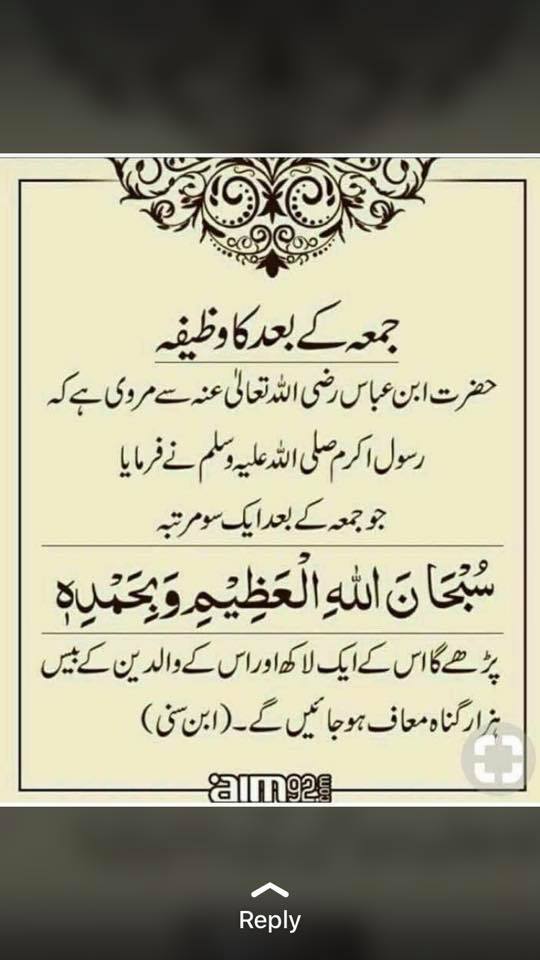 جمعہ کے بعد کا وظیفہ
حضرت ابن عباس رضی اللہ تعالیٰ عنہ سے مروی ہے کہ
رسول اکرم صلی اللہ علیہ وسلم نے فرمایا
جو جمعہ کے بعد ایک سو مرتبہ
سُبْحَانَ اللهِ الْعَظِيْمِ وَبِحَمْدِهٖ
پڑھے گا اس کے ایک لاکھ اور اس کے والدین کے بیس
ہزار گناہ معاف ہو جائیں گے۔ (ابن سنی)
aim92.com
Reply